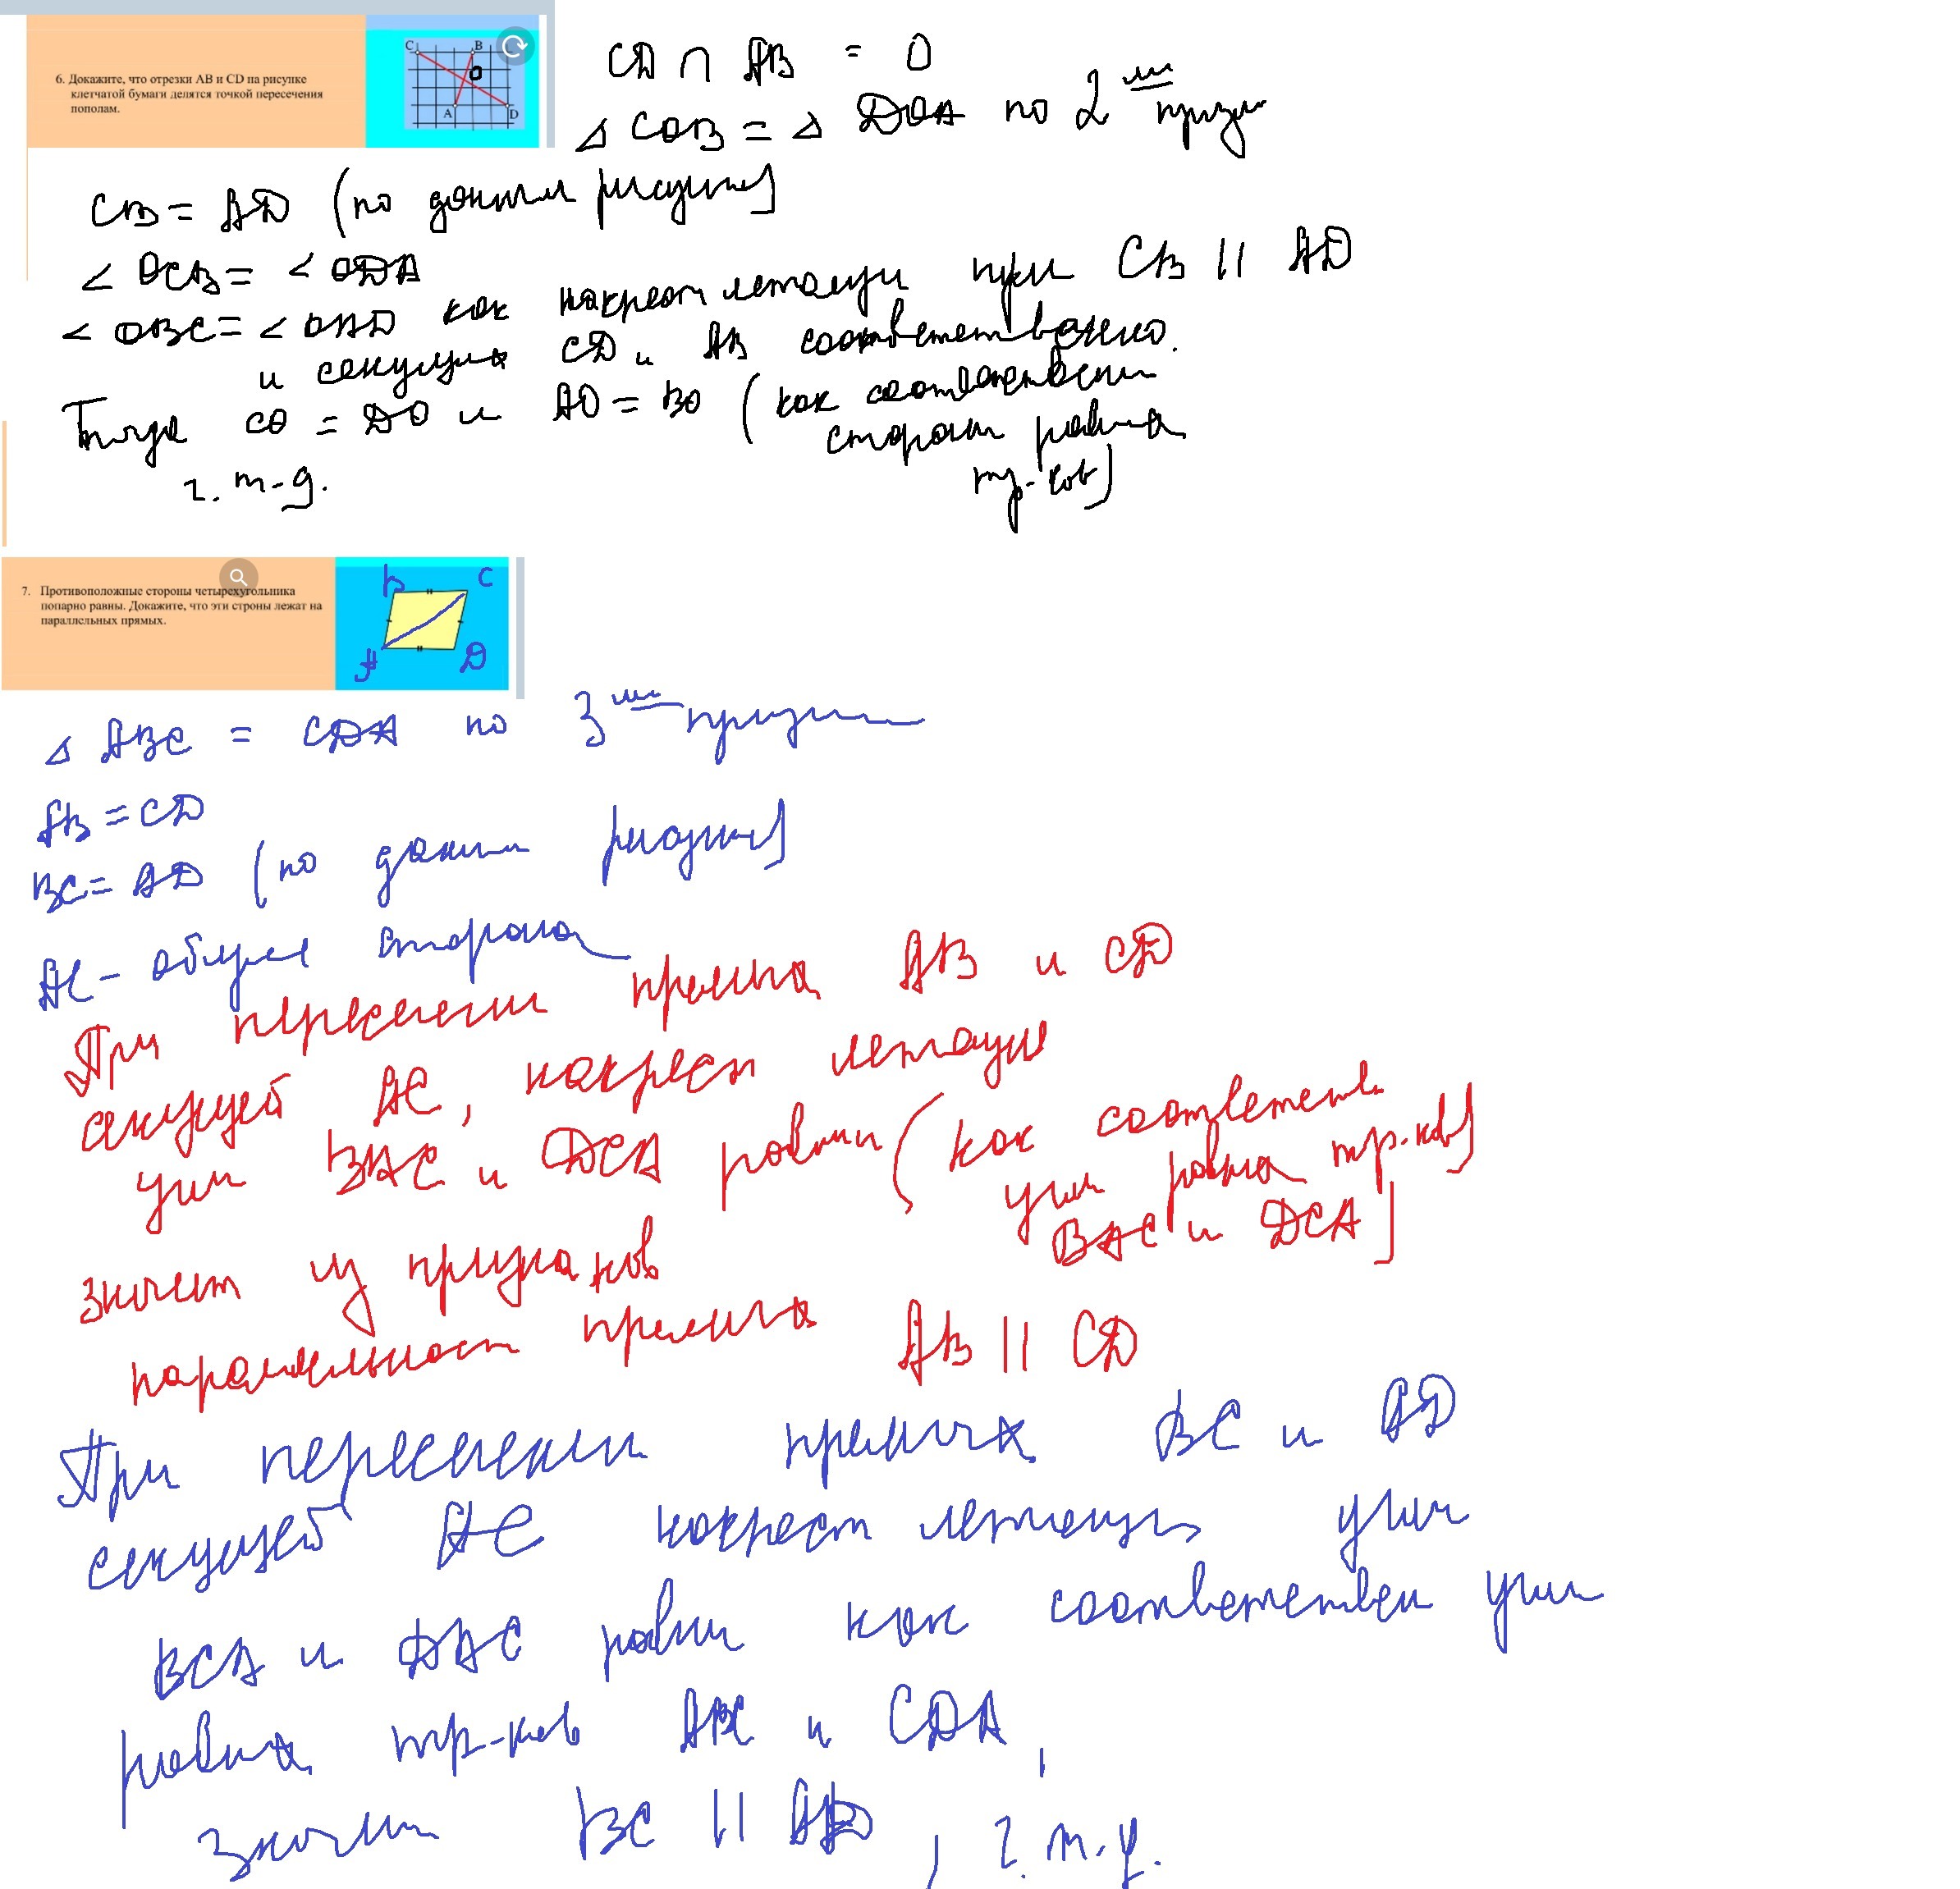 6. Докажите, что отрезки AB и CD на рисунке
клетчатой бумаги делятся точкой пересечения
пополам.
C B
O
A D
CD ∩ AB = O
△ COB = △ DOA по 2 призн
CB = AD (по данным рисунка)
∠ OCB = ∠ ODA
∠ OBC = ∠ OAD как накрест лежащи при CB || AD
и секущих CD и AB соответственно.
Тогда CO = DO и AO = BO (как соответствен
сторон равна
тр-ков)
ч. т-д.
7. Противоположные стороны четырехугольника
попарно равны. Докажите, что эти строны лежат на
параллельных прямых.
B C
A D
△ ABC = CDA по 3 призн
AB = CD
BC = AD (по данным рисунка)
AC - общая сторона
При пересечении прямых AB и CD
секущей AC, накрест лежащие
угл BAC и DCA равны (как соответств
угл равна тр-ков)
BAC и DCA]
значит из признаков
параллельност прямых AB || CD
При пересечении прямых BC и AD
секущей AC накрест лежащи угл
BCA и DAC равны как соответствен угл
равных тр-ков ABC и CDA,
значит BC || AD, ч. т. д.